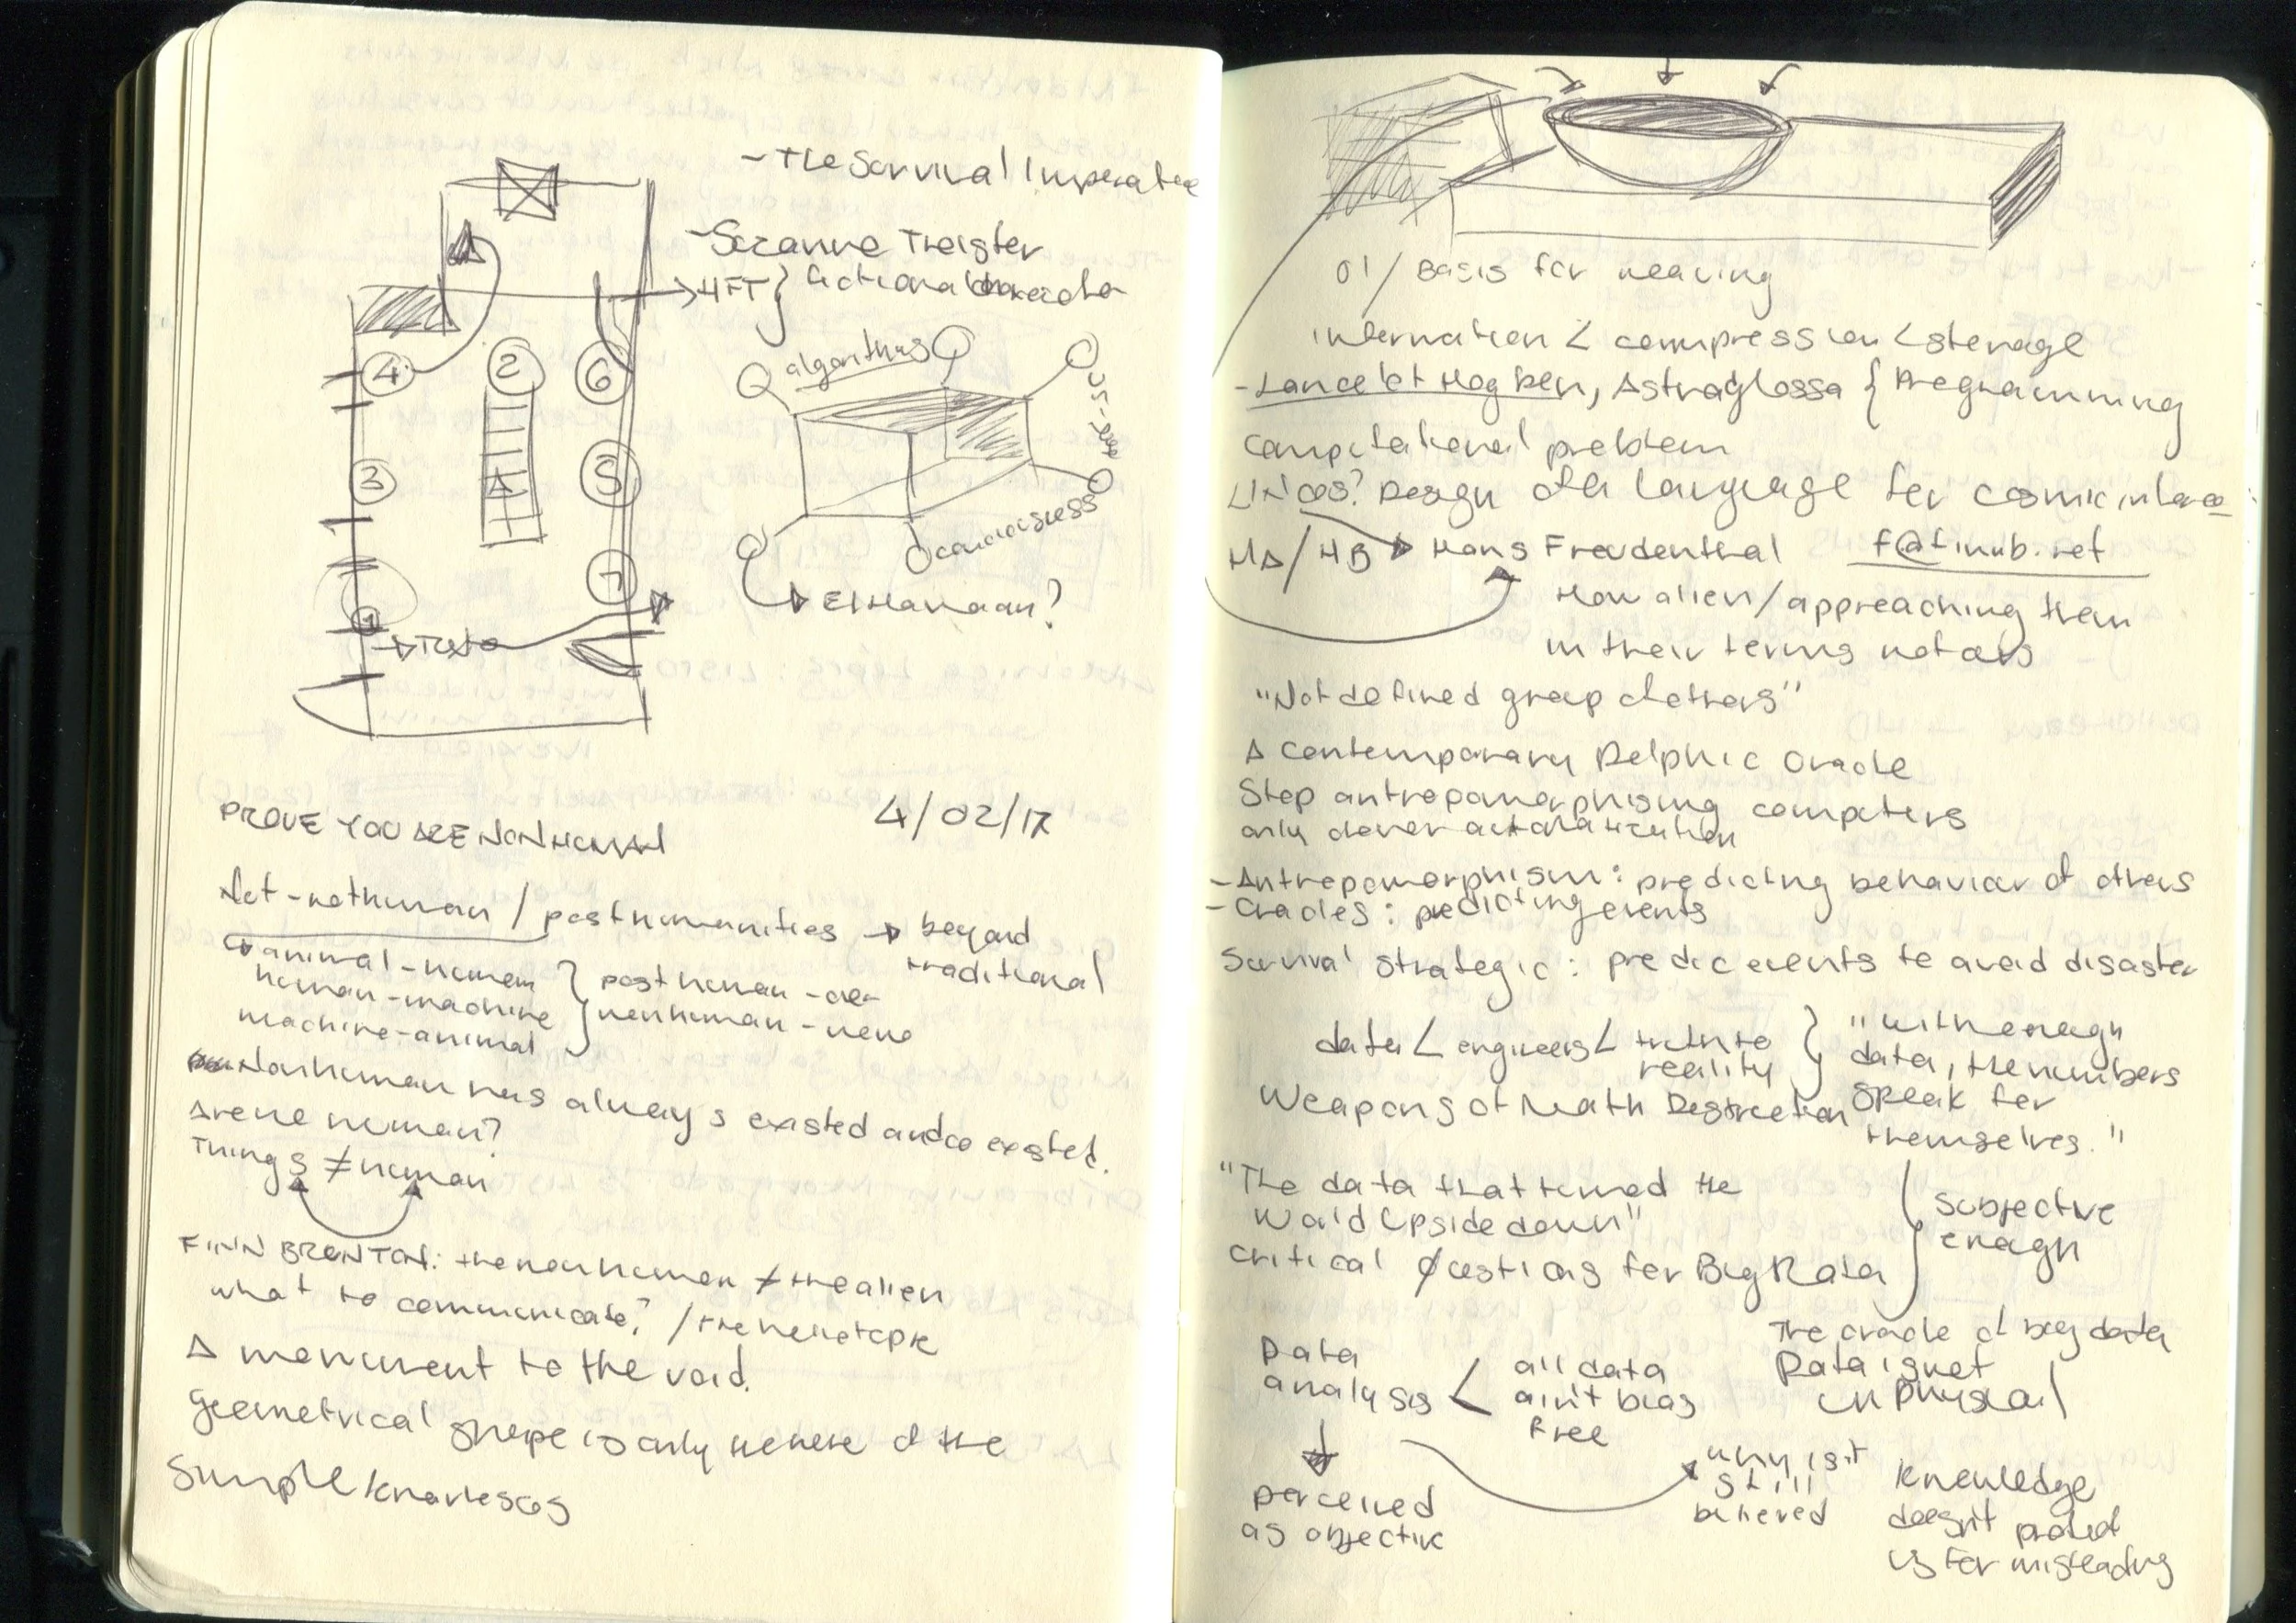 - The Survival Imperative
- Suzanne Treister
→ HFT } fictional character
algorithms
us-them
consciousness
→ El Hanaan?
4 2 6
3 5
7
1
→ Texto
PROVE YOU ARE NONHUMAN 4/02/17
Not-nothuman / posthumanities → beyond
traditional
animal-human
human-machine
machine-animal
} posthuman - over
nonhuman - nено
Nonhuman has always existed and co existed.
Are we human?
Things ≠ human
FINN BRUNTON: the nonhuman ≠ the alien
what to communicate? / the
A monument to the void.
Geometrical shape is only the
simple
01 / Basis for weaving
information < compression < storage
- Lancelot Hogben, Astraglossa { Programming
computational problem
LINCOS? Design of a language for cosmic interco
HA / HB → Hans Freudenthal f@finnb.net
How alien / approaching them
in their terms not ours
"Not defined group of others"
A contemporary Delphic Oracle
Stop antropomorphising computers
only clever automatization
- Antropomorphism: predicting behavior of others
- Oracles: predicting events
Survival strategic: predic events to avoid disaster
data < engineers < truth to
reality
} "With enough
data, the numbers
speak for
themselves."
Weapons of Math Destruction
"The data that turned the
World Upside down"
Critical Questions for Big Data
} subjective
enough
The oracle of big data
Data
analysis
< all data
ain't bias
free
Data is not
un physical
↓
perceived
as objective
why is it
still
believed
knowledge
doesn't protect
us for misleading